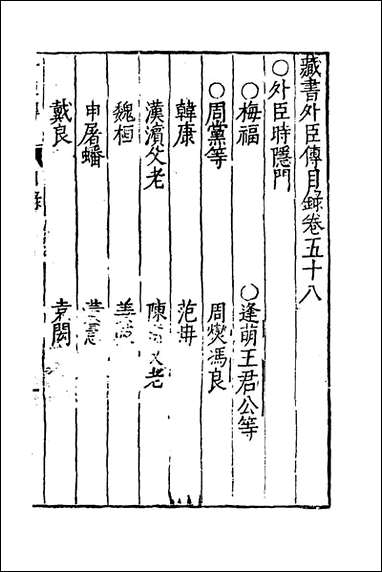 藏書外臣傳目錄卷五十八
〇外臣時隱門
〇梅福
〇逢萌王君公等
〇周黨等
周燮馮良
韓康
范冉
漢濱父老
陳 父老
魏桓
姜
申屠蟠
黃憲
戴良
袁閎